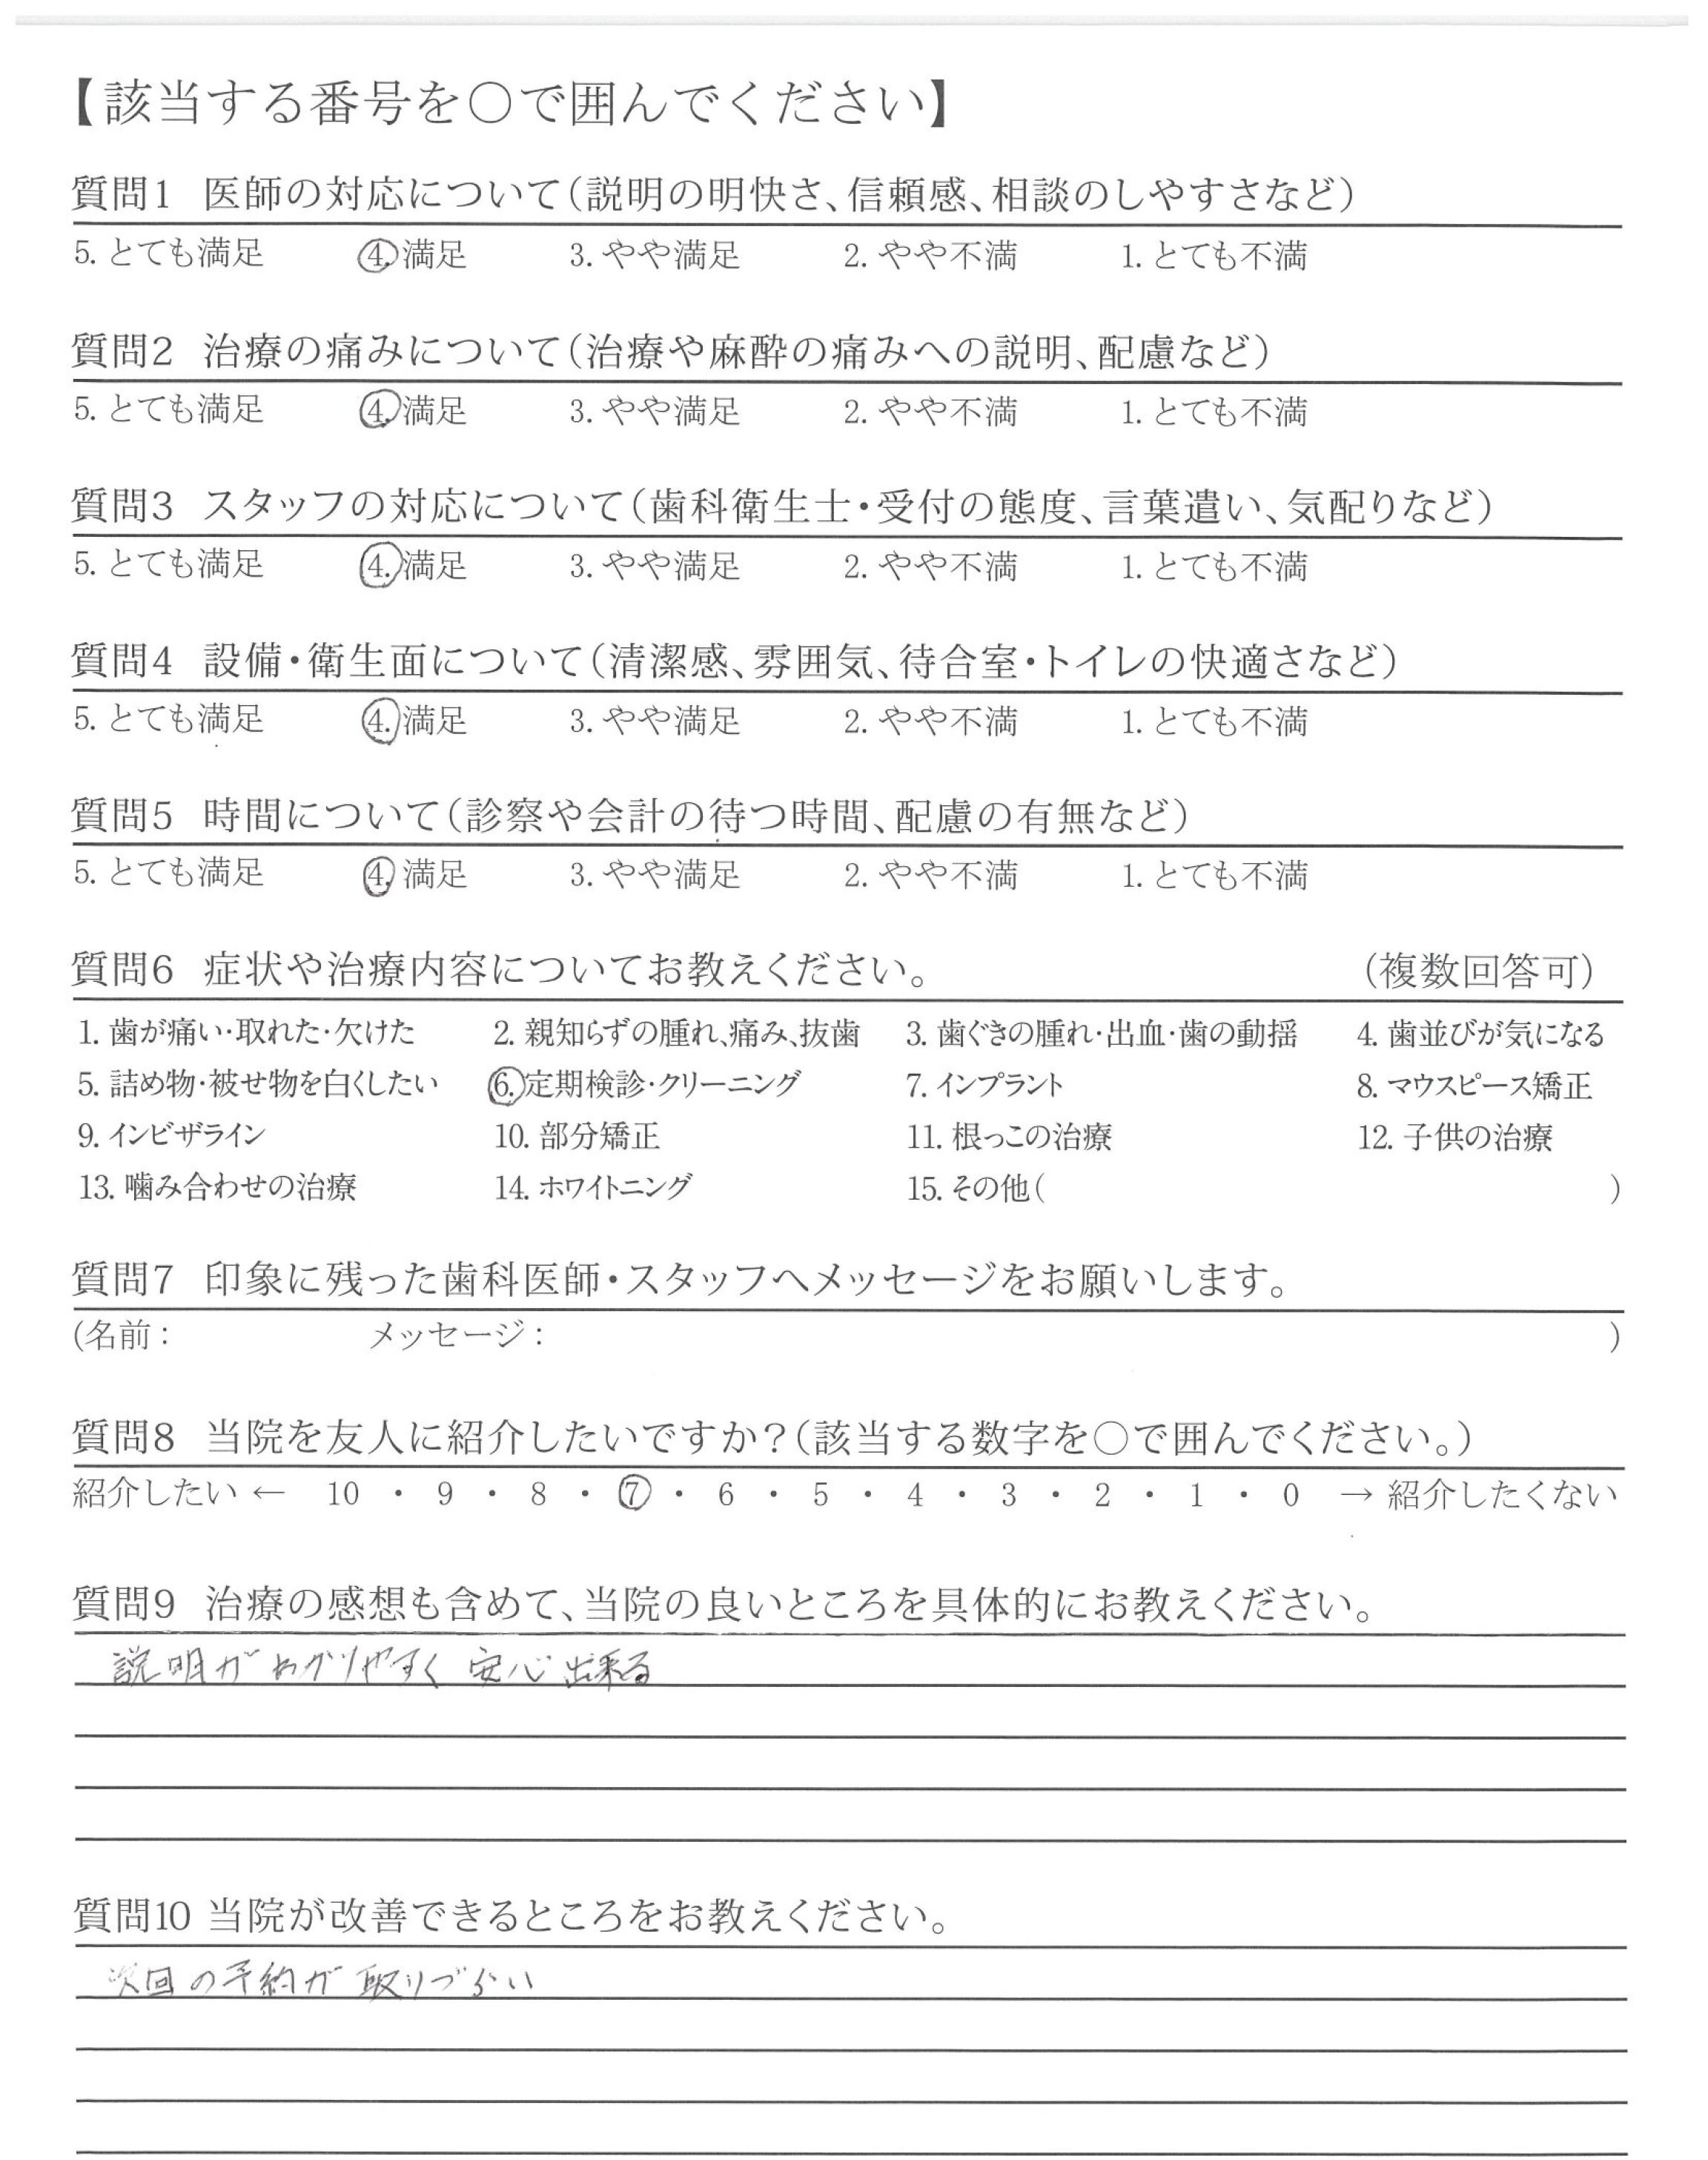 【該当する番号を○で囲んでください】
質問1 医師の対応について（説明の明快さ、信頼感、相談のしやすさなど）
5. とても満足 4. 満足 3. やや満足 2. やや不満 1. とても不満
質問2 治療の痛みについて（治療や麻酔の痛みへの説明、配慮など）
5. とても満足 4. 満足 3. やや満足 2. やや不満 1. とても不満
質問3 スタッフの対応について（歯科衛生士・受付の態度、言葉遣い、気配りなど）
5. とても満足 4. 満足 3. やや満足 2. やや不満 1. とても不満
質問4 設備・衛生面について（清潔感、雰囲気、待合室・トイレの快適さなど）
5. とても満足 4. 満足 3. やや満足 2. やや不満 1. とても不満
質問5 時間について（診察や会計の待つ時間、配慮の有無など）
5. とても満足 4. 満足 3. やや満足 2. やや不満 1. とても不満
質問6 症状や治療内容についてお教えください。 （複数回答可）
1. 歯が痛い・取れた・欠けた 2. 親知らずの腫れ、痛み、抜歯 3. 歯ぐきの腫れ・出血・歯の動揺 4. 歯並びが気になる
5. 詰め物・被せ物を白くしたい 6. 定期検診・クリーニング 7. インプラント 8. マウスピース矯正
9. インビザライン 10. 部分矯正 11. 根っこの治療 12. 子供の治療
13. 噛み合わせの治療 14. ホワイトニング 15. その他（ ）
質問7 印象に残った歯科医師・スタッフへメッセージをお願いします。
（名前： メッセージ： ）
質問8 当院を友人に紹介したいですか？（該当する数字を○で囲んでください。）
紹介したい ← 10 ・ 9 ・ 8 ・ 7 ・ 6 ・ 5 ・ 4 ・ 3 ・ 2 ・ 1 ・ 0 → 紹介したくない
質問9 治療の感想も含めて、当院の良いところを具体的にお教えください。
説明がわかりやすく 安心出来る
質問10 当院が改善できるところをお教えください。
次回の予約が取りづらい